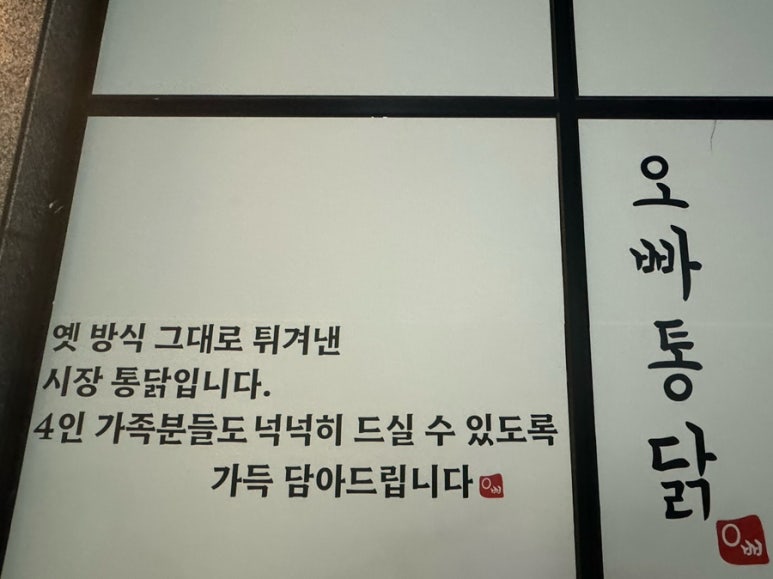 옛 방식 그대로 튀겨낸
시장 통닭입니다.
4인 가족분들도 넉넉히 드실 수 있도록
가득 담아드립니다
오빠통닭